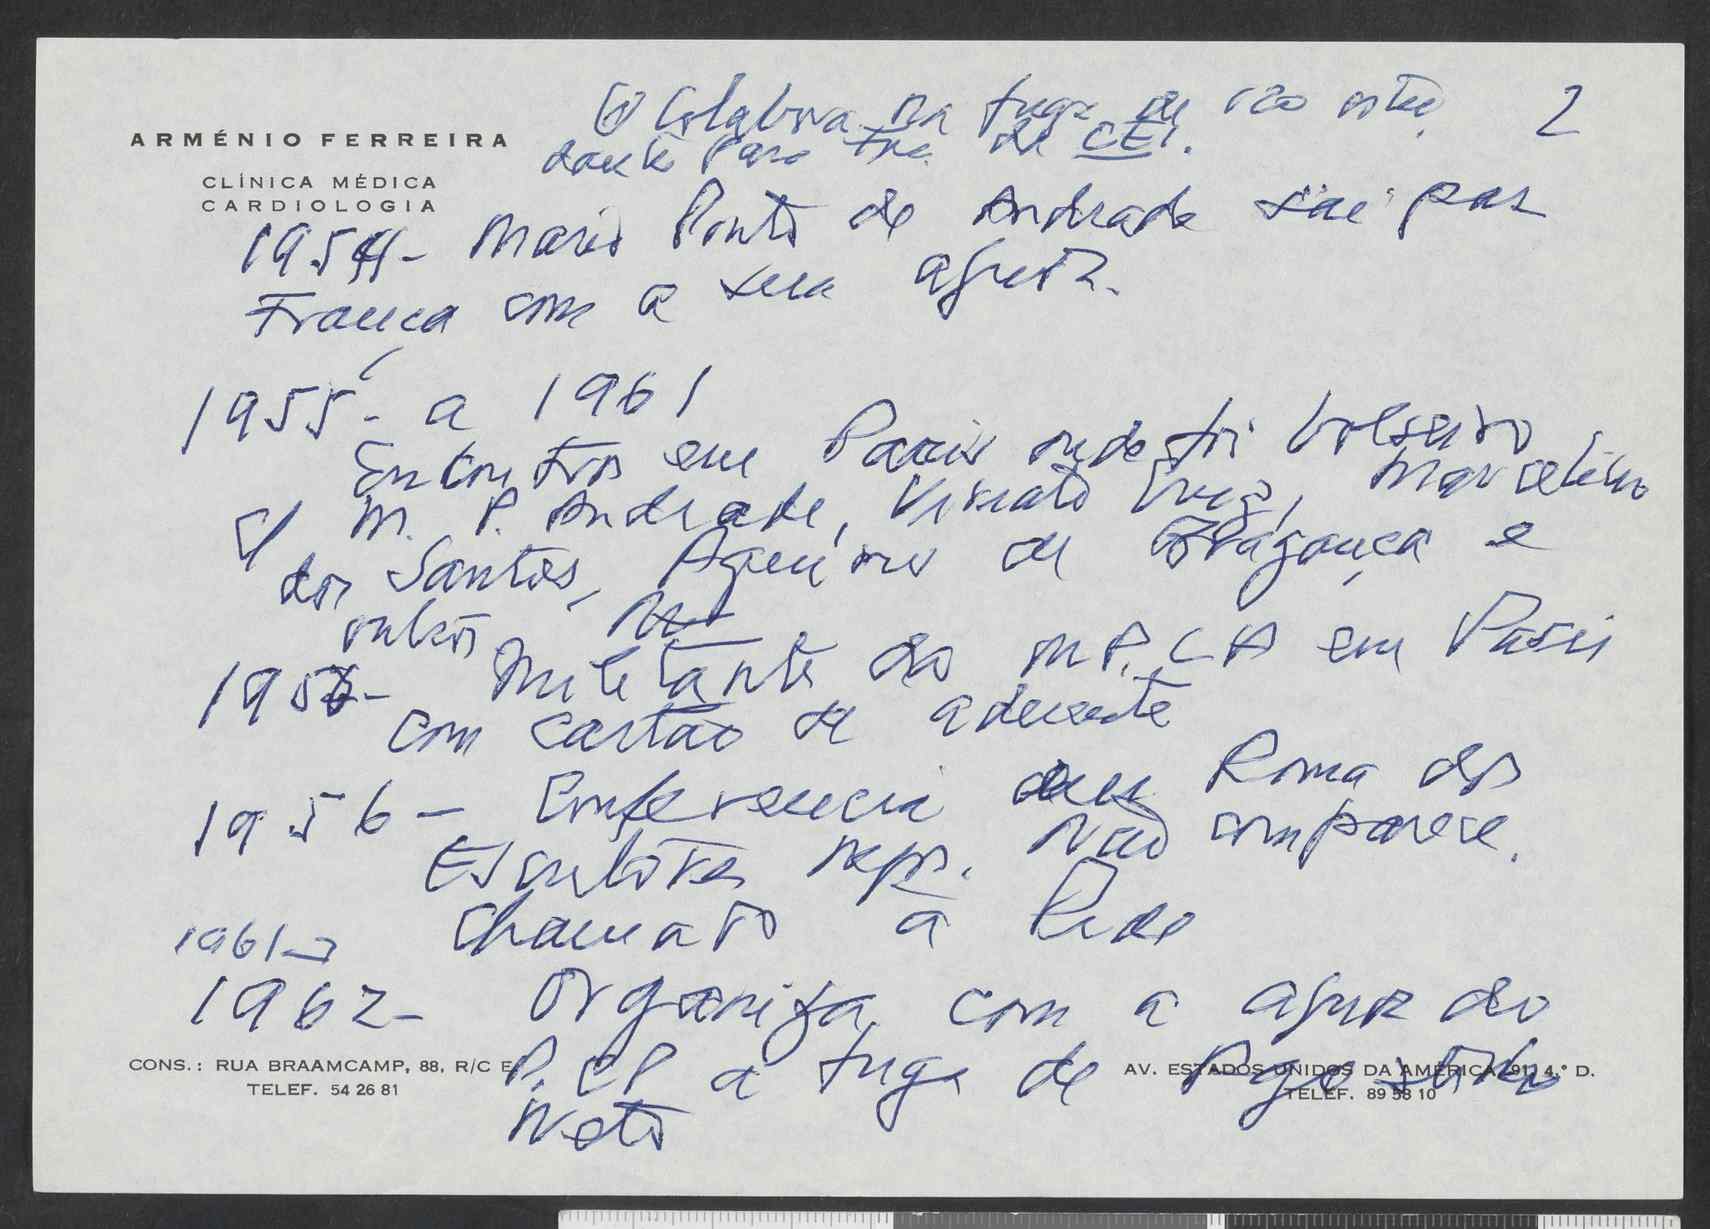 2
Colabora na fuga de 120 estu
dantes para fra da CEI.
ARMÉNIO FERREIRA
CLÍNICA MÉDICA
CARDIOLOGIA
1954 - Mario Pinto de Andrade sai para
França com a sua ajuda.
1955 - a 1961
Encontros em Paris onde foi bolseiro
c/ M. P. Andrade, Viriato Cruz, Marcelino
dos Santos, Aquino de Bragança e
outros
1956 - Militante do M.P.L.A em Paris
com cartão de aderente
1956 - Conferencia em Roma dos
Escritores negros. Não comparece.
1961 Chamado à Pide
1962 - Organiza com a ajuda do
P.CP a fuga de Agostinho
Neto
CONS.: RUA BRAAMCAMP, 88, R/C E.
TELEF. 54 26 81
AV. ESTADOS UNIDOS DA AMÉRICA, 91, 4.º D.
TELEF. 89 58 10